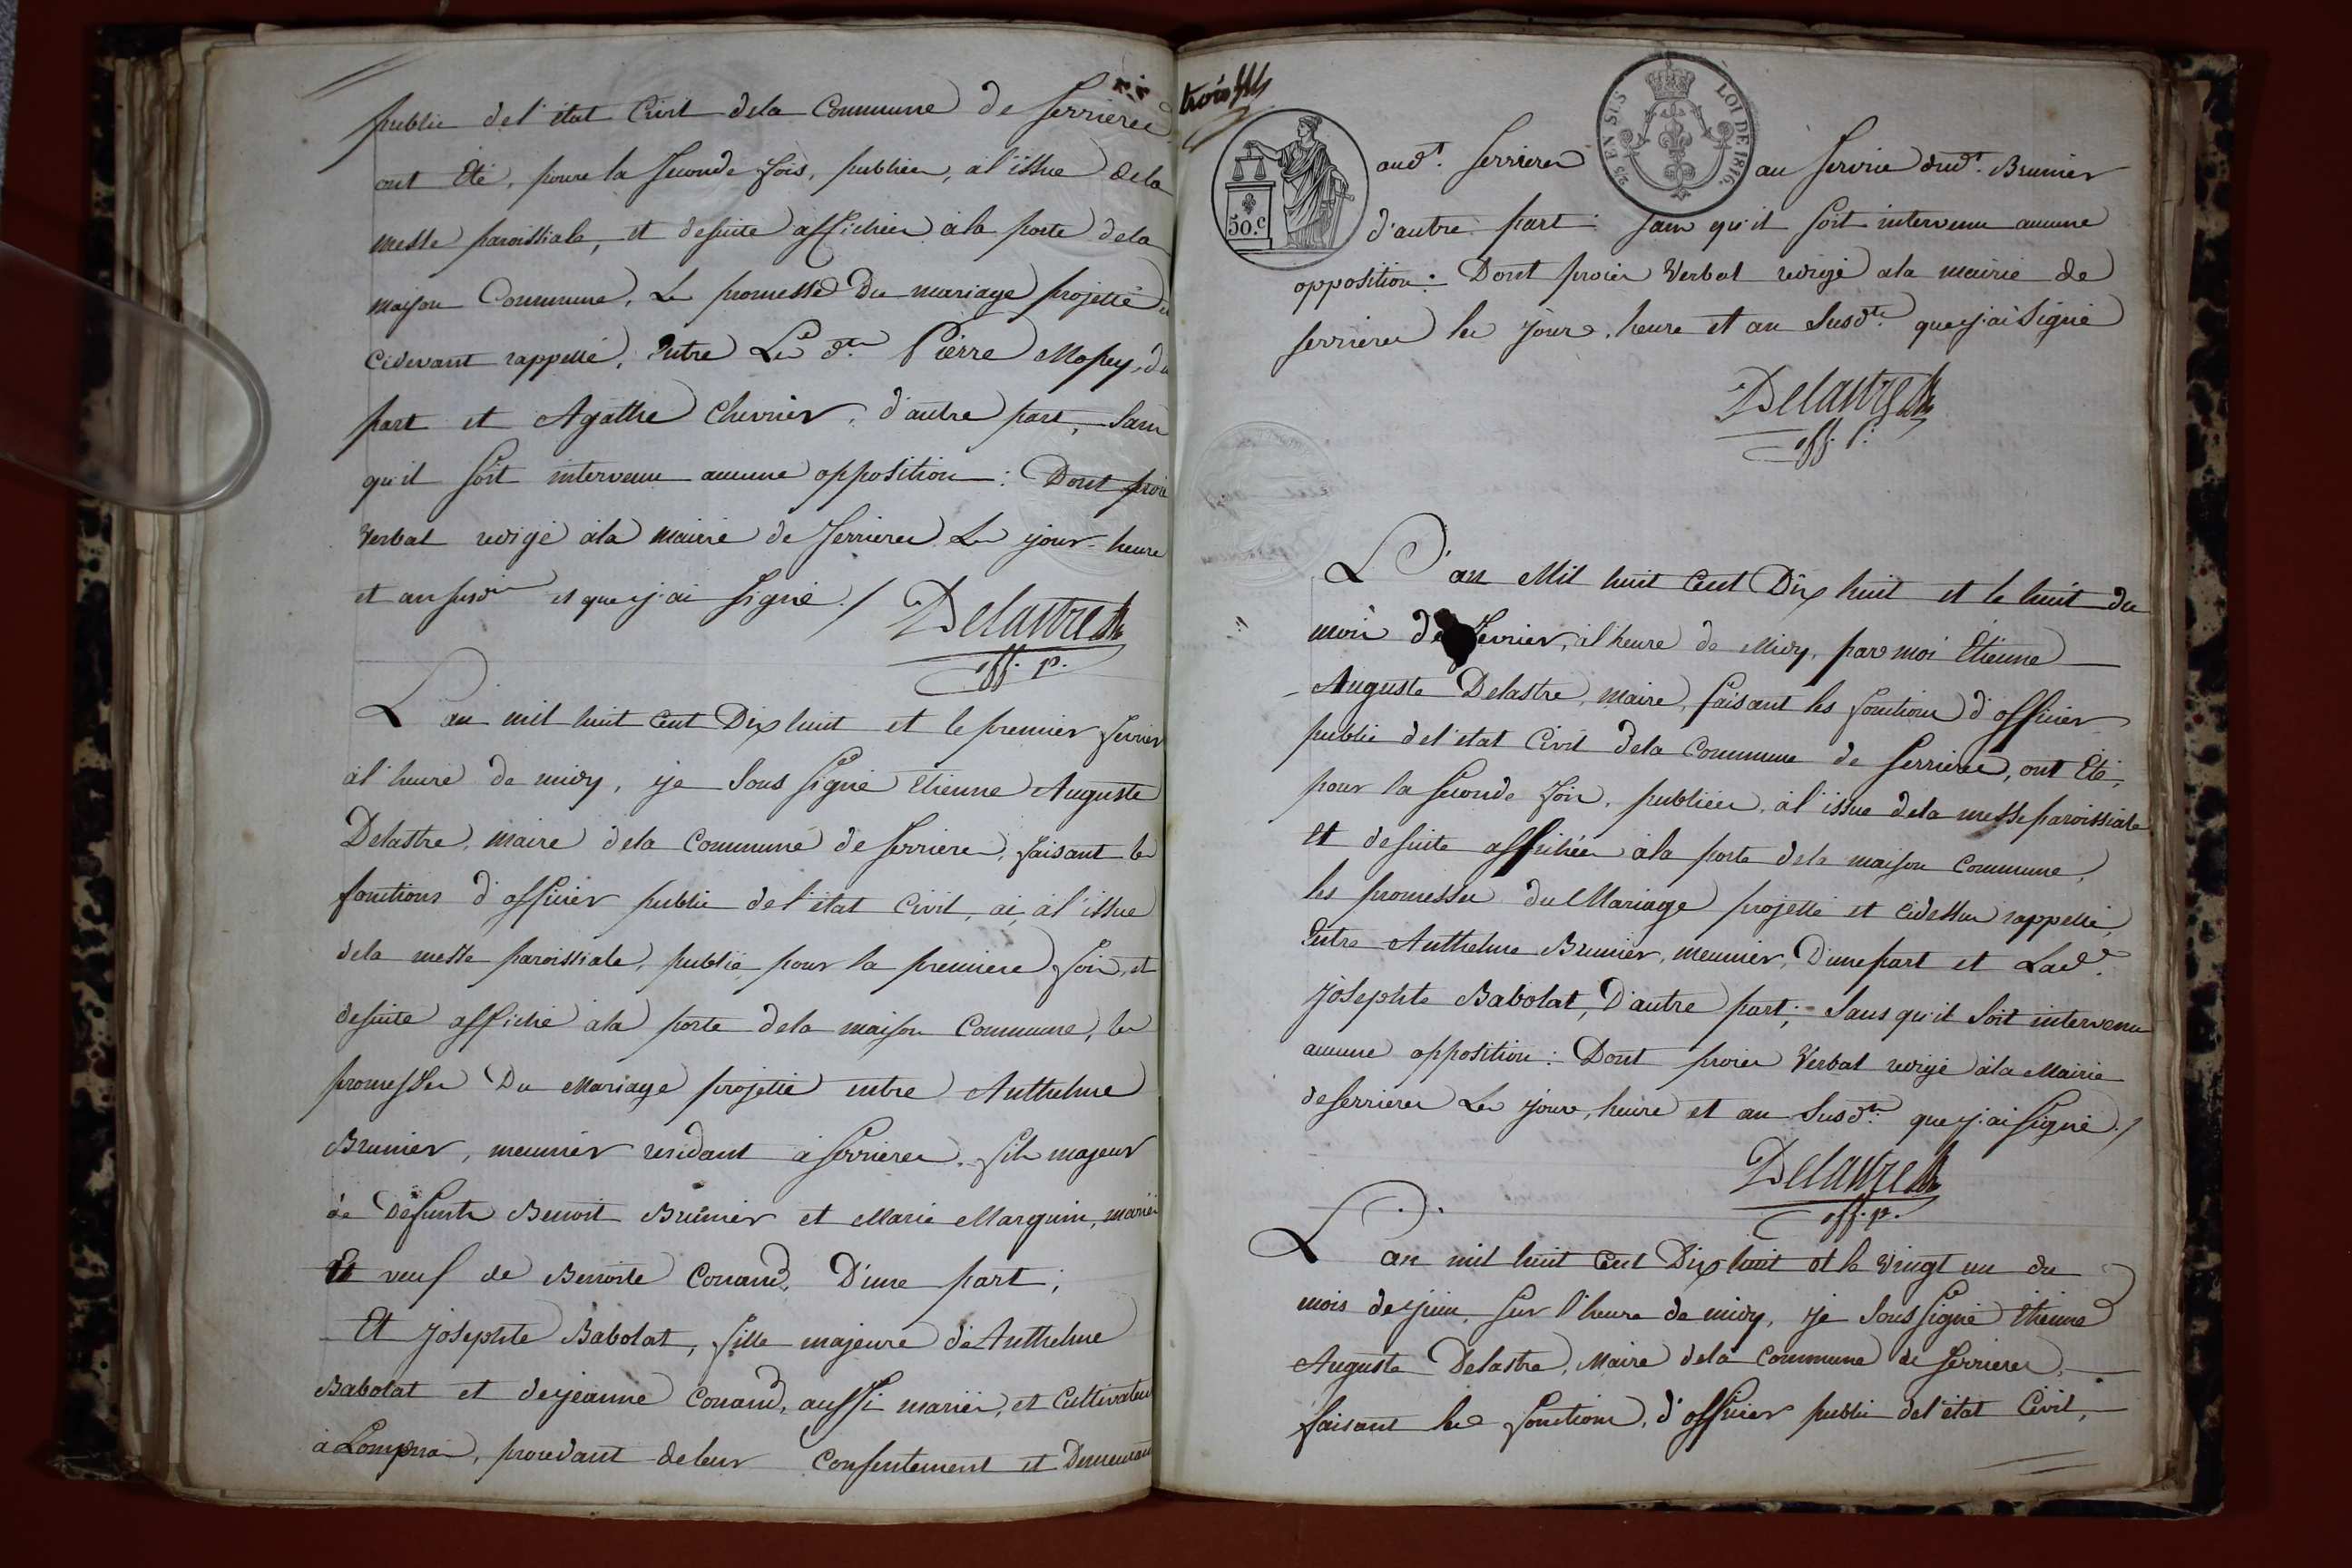 public de l'état Civil dela Commune de Serrieres
ont Eté, pour la seconde fois, publiées, à l'issue dela
messe paroissiale, et desuite affichées à la porte dela
maison Commune, Les promesses Du mariage projetté et
Cidevant rappellé, Entre Le dt. Pierre Mopey, d'u
part et Agathe Chevrier, d'autre part, Sans
qu'il soit intervenu aucune opposition : Dont procès
Verbal redigé àla mairie de Serrieres Les jour heure
et an susdits et que j'ai signé ./ Delastre
off. p.
L'an mil huit Cent Dix huit et le premier fevrier
à l'heure de midy, je Sous signé Etienne Auguste
Delastre, maire dela Commune de Serrieres, faisant les
fonctions d'officier public de l'état Civil, ai, à l'issue
dela messe paroissiale, publié pour la premiere fois, et
desuite affiché àla porte dela maison Commune, les
promesses Du Mariage projetté entre Anthelme
Brunier, meunier residant à Serrieres, fils majeur
de Defunts Benoit Brunier et Marie Marguin, mariés
Et veuf de Benoite Conand, D'une part ;
Et Josephte Babolat, fille majeure de Anthelme
Babolat et de jeanne Conand, aussi mariés, et Cultivateurs
à Lompnas, procedant de leur Consentement et Demeurant
trois
50.c
25 EN SUS
LOI DE 1816.
audt. Serrieres au service dudt. Brunier
d'autre part : Sans qu'il soit intervenu aucune
opposition : Dont procès Verbal redigé ala mairie de
Serrieres les jour, heure et an Susdts. que j'ai Signé
Delastre
off. p.
L'an Mil huit Cent Dix huit et le huit du
mois de fevrier, à l'heure de Midy, par moi Etienne
Auguste Delastre, maire, faisant les fonctions d'officier
public de l'etat Civil dela Commune de Serrieres, ont Eté,
pour la seconde fois, publiées, à l'issue dela messe paroissiale
Et desuite affichées àla porte dela maison Commune,
les promesses du Mariage projetté et cidessus rappellé,
Entre Anthelme Brunier, meunier, D'une part et Lade.
Josephte Babolat, D'autre part ; Sans qu'il Soit intervenu
aucune opposition : Dont procès Verbal redigé àla Mairie
de Serrieres Les jour, heure et an Susdts. que j'ai signé ./
Delastre
off. p.
L'an mil huit Cent Dix huit et le vingt un du
mois de juin, sur l'heure de midy, je Sous signé Etienne
Auguste Delastre, Maire dela Commune de Serrieres,
faisant les fonctions, d'officier public de l'état Civil,